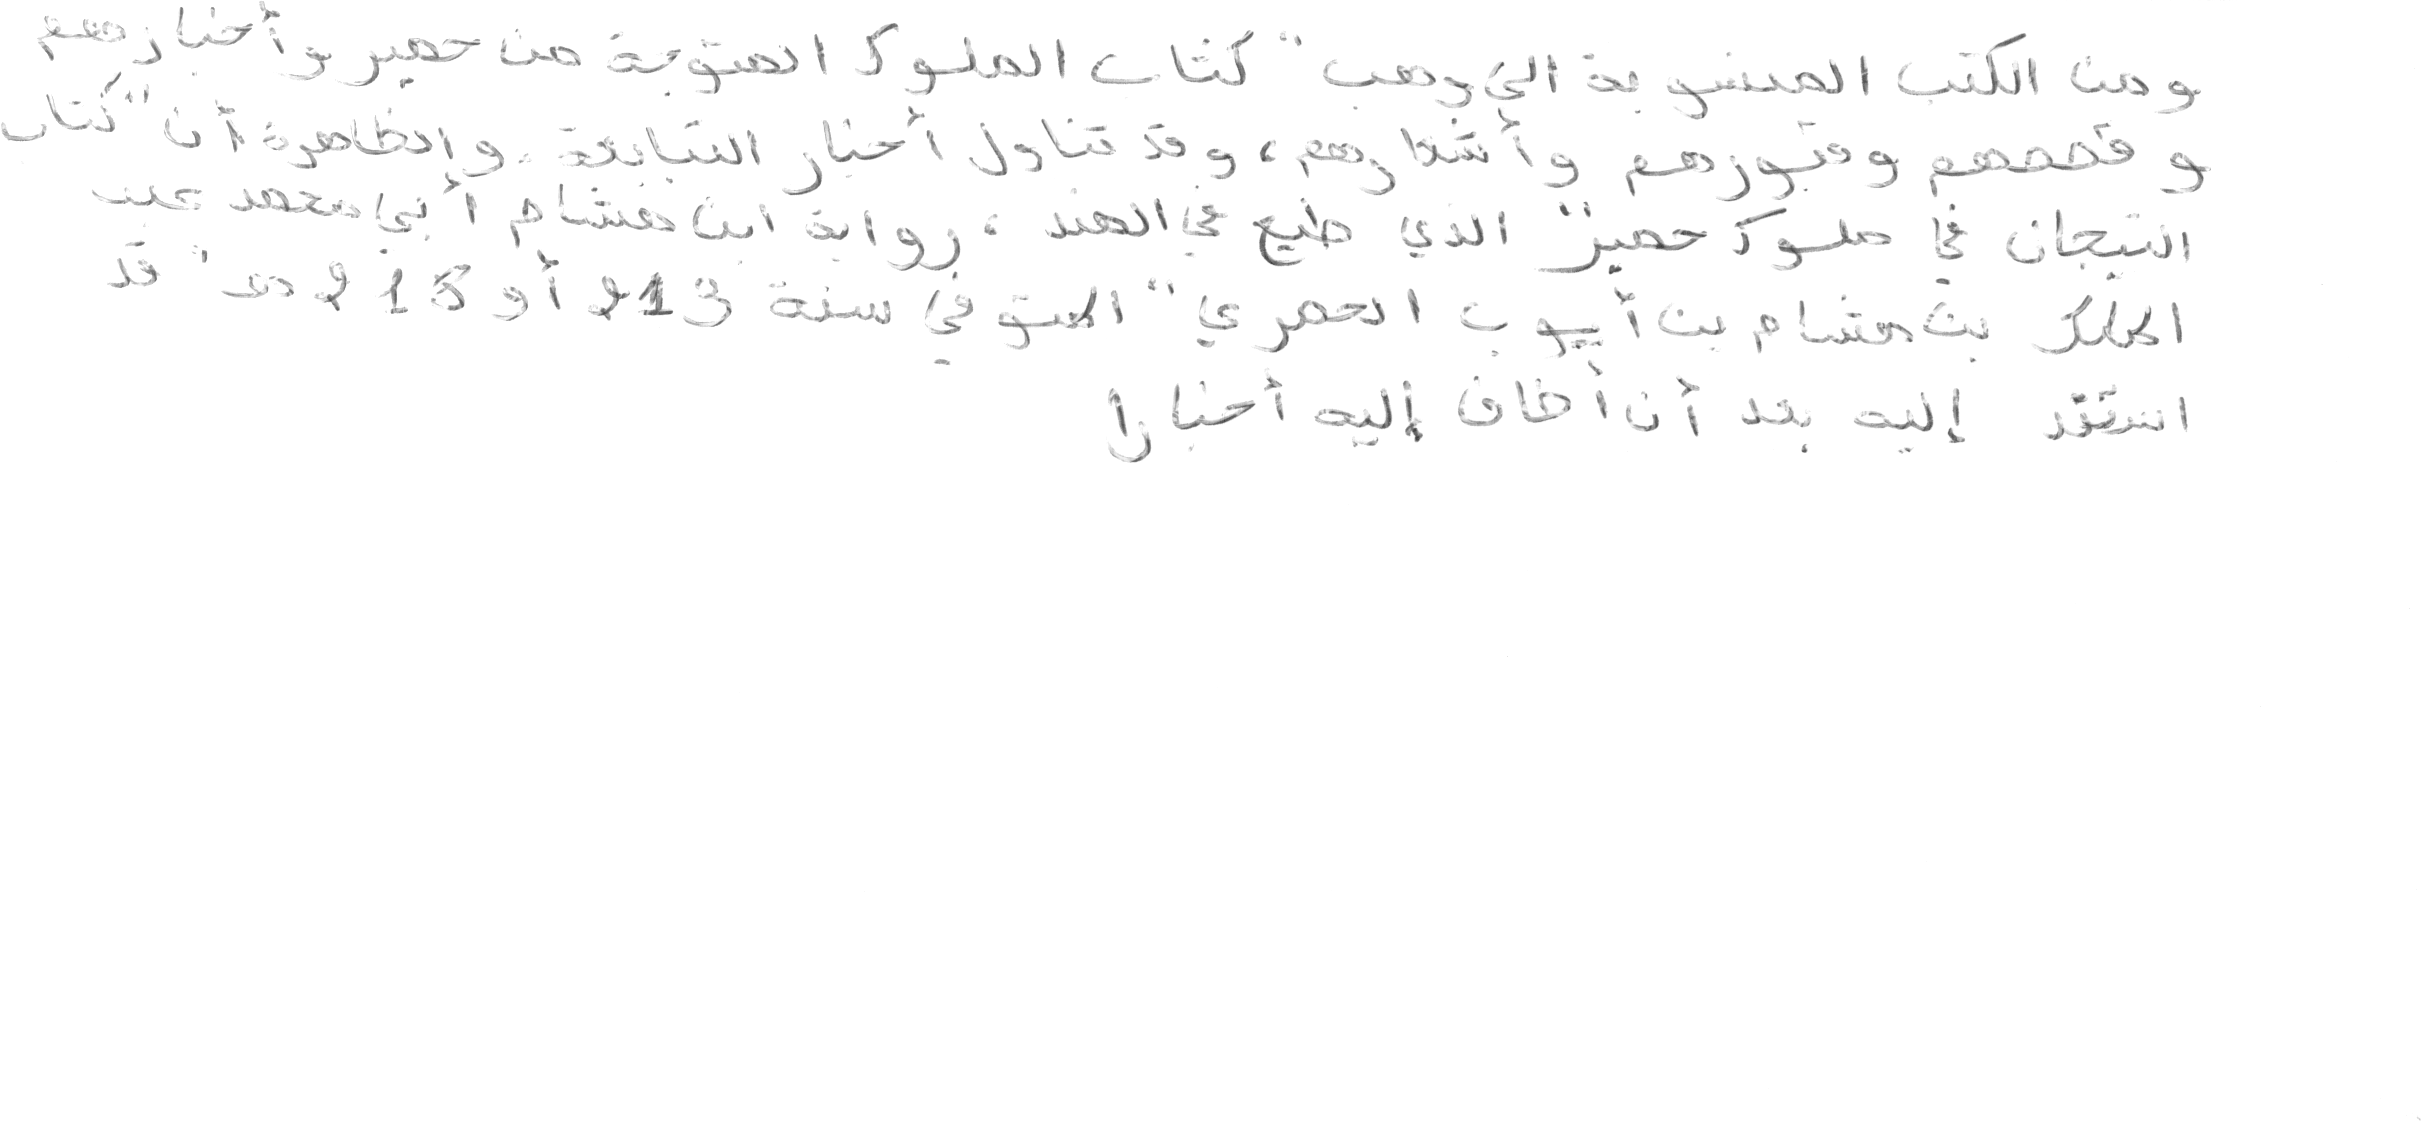 ومن الكتب المنسوبة الى وهب "كتاب الملوك المتوجة من حمير وأخبارهم
وقصصهم وقبورهم وأشعارهم، وقد تناول أخبار التبابعة. والظاهرة أن "كتاب
التيجان في ملوك حمير" الذي طبع في الهند، رواية ابن هشام أبي محمد عبد
الملك بن هشام بن أيوب الحمري" المتوفي سنة 213 أو 218 هـ" قد
استند إليه بعد أن أضاف إليه أخبارا